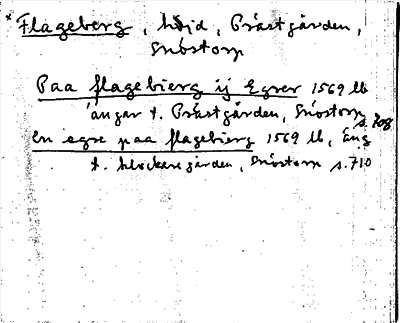 * Flageberg, höjd, Prästgården,
Snöstorp
Paa flagebierg ij Egrer 1569 lb
ängar t. Prästgården, Snöstorp s. 708
En egre paa flagebierg 1569 lb, äng
t. klockaregården, Snöstorp s. 710